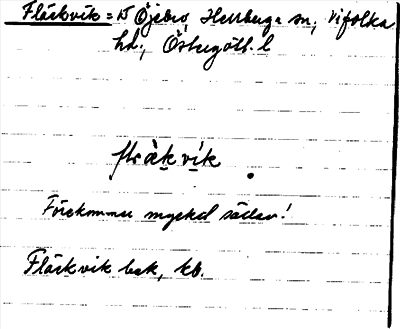 Fläckvik = ts Öjebro, Herrberga sn, Vifolka
hd., Östergötl. l
flräkvik.
Förekommer mycket sällan!
Fläckvik bak, kb.